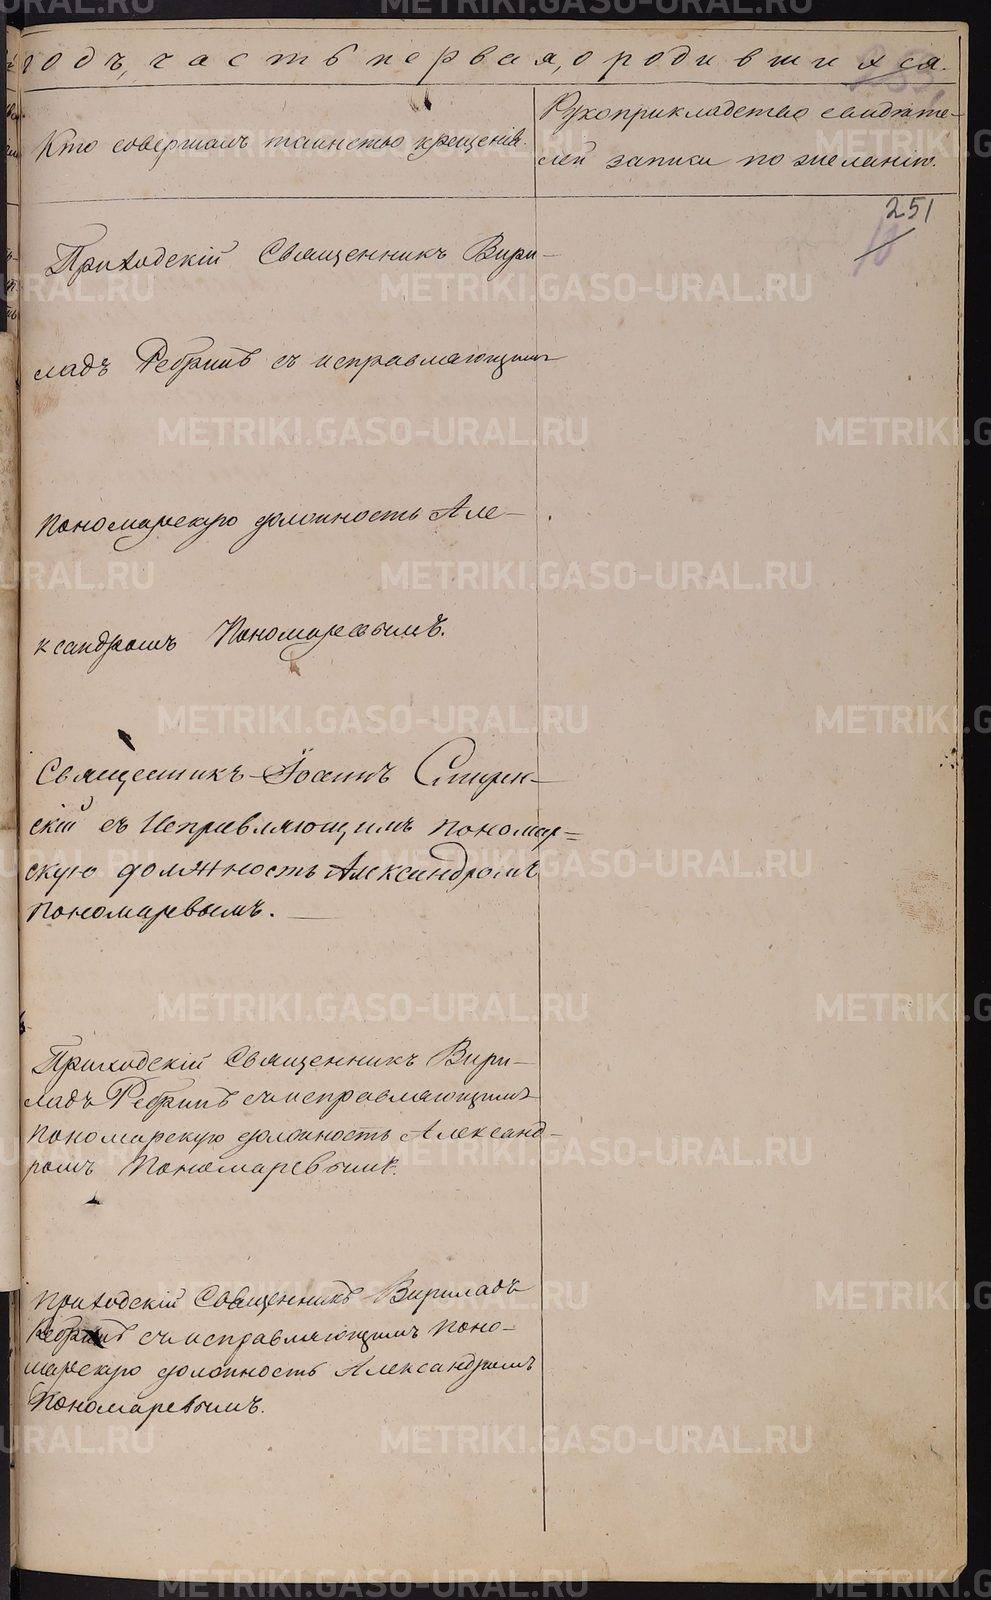 годъ, часть первая, о родившихся.
Кто совершалъ таинство крещенія.
Рукоприкладство свидѣте-
лей записи по желанію.
251
10
Приходскій Священникъ Вири-
ладъ Ребринъ съ исправляющимъ
пономарскую должность Але-
ксандромъ Пономаревымъ.
Священникъ Іоаннъ
скій съ Исправляющимъ пономар=
скую должность Александромъ
Пономаревымъ.
Приходскій Священникъ Вири-
ладъ Ребринъ съ исправляющимъ
пономарскую должность Александ-
ромъ Пономаревымъ.
Приходскій Священникъ Вириладъ
Ребринъ съ исправляющимъ поно-
марскую должность Александромъ
Пономаревымъ.
METRIKI.GASO-URAL.RU